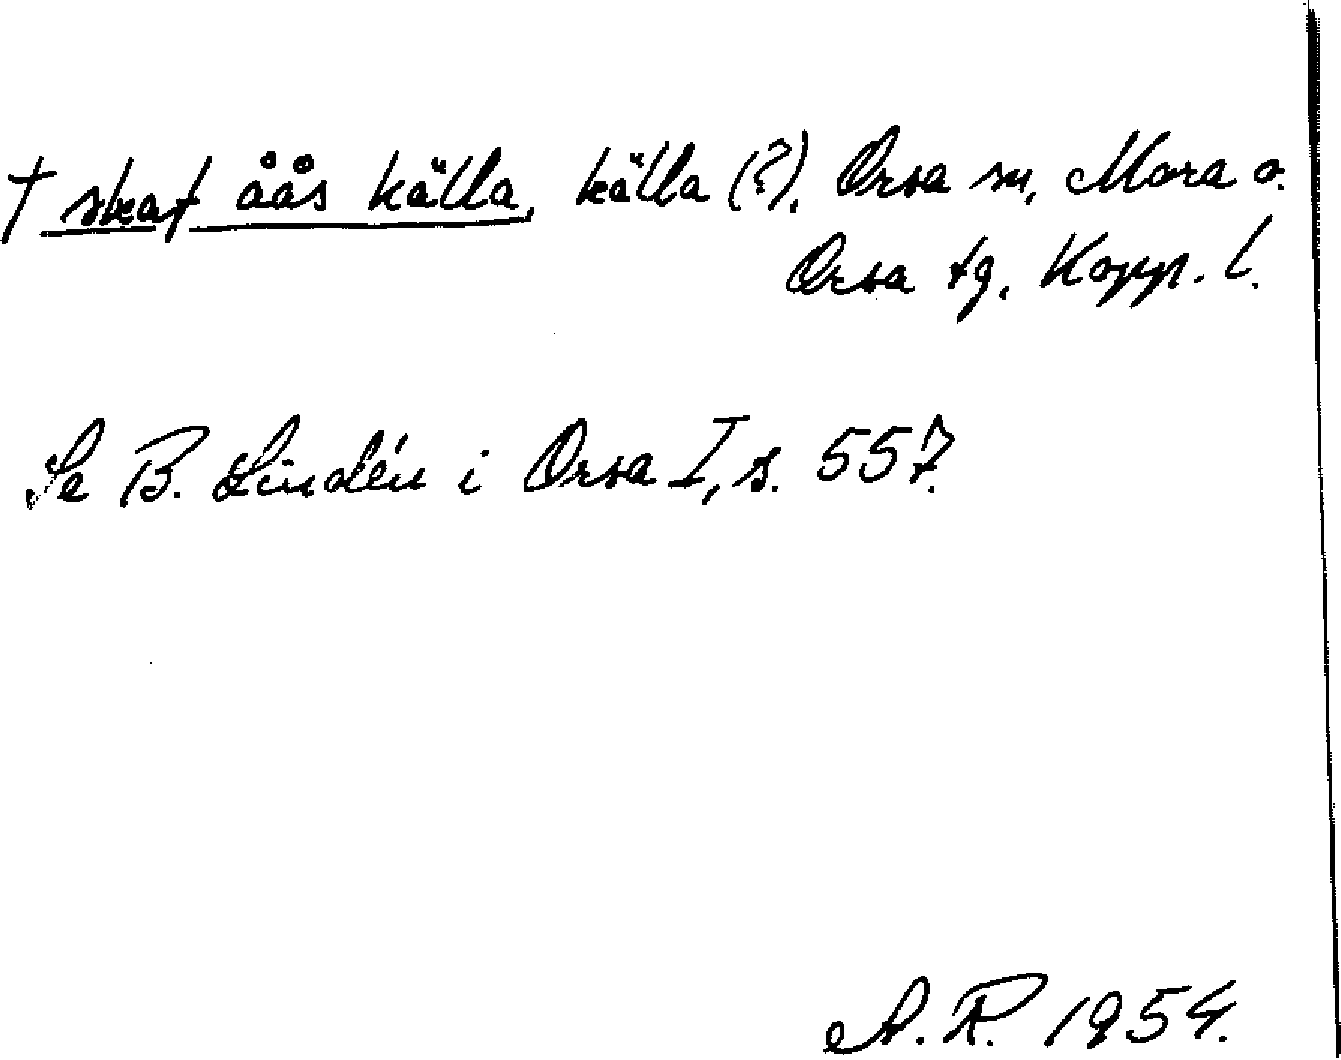 † skaf åås källa, källa (?), Orsa sn, Mora o.
Orsa tg, Kopp. l.
Se B. Lindén i Orsa I, s. 557.
A. R. 1954.